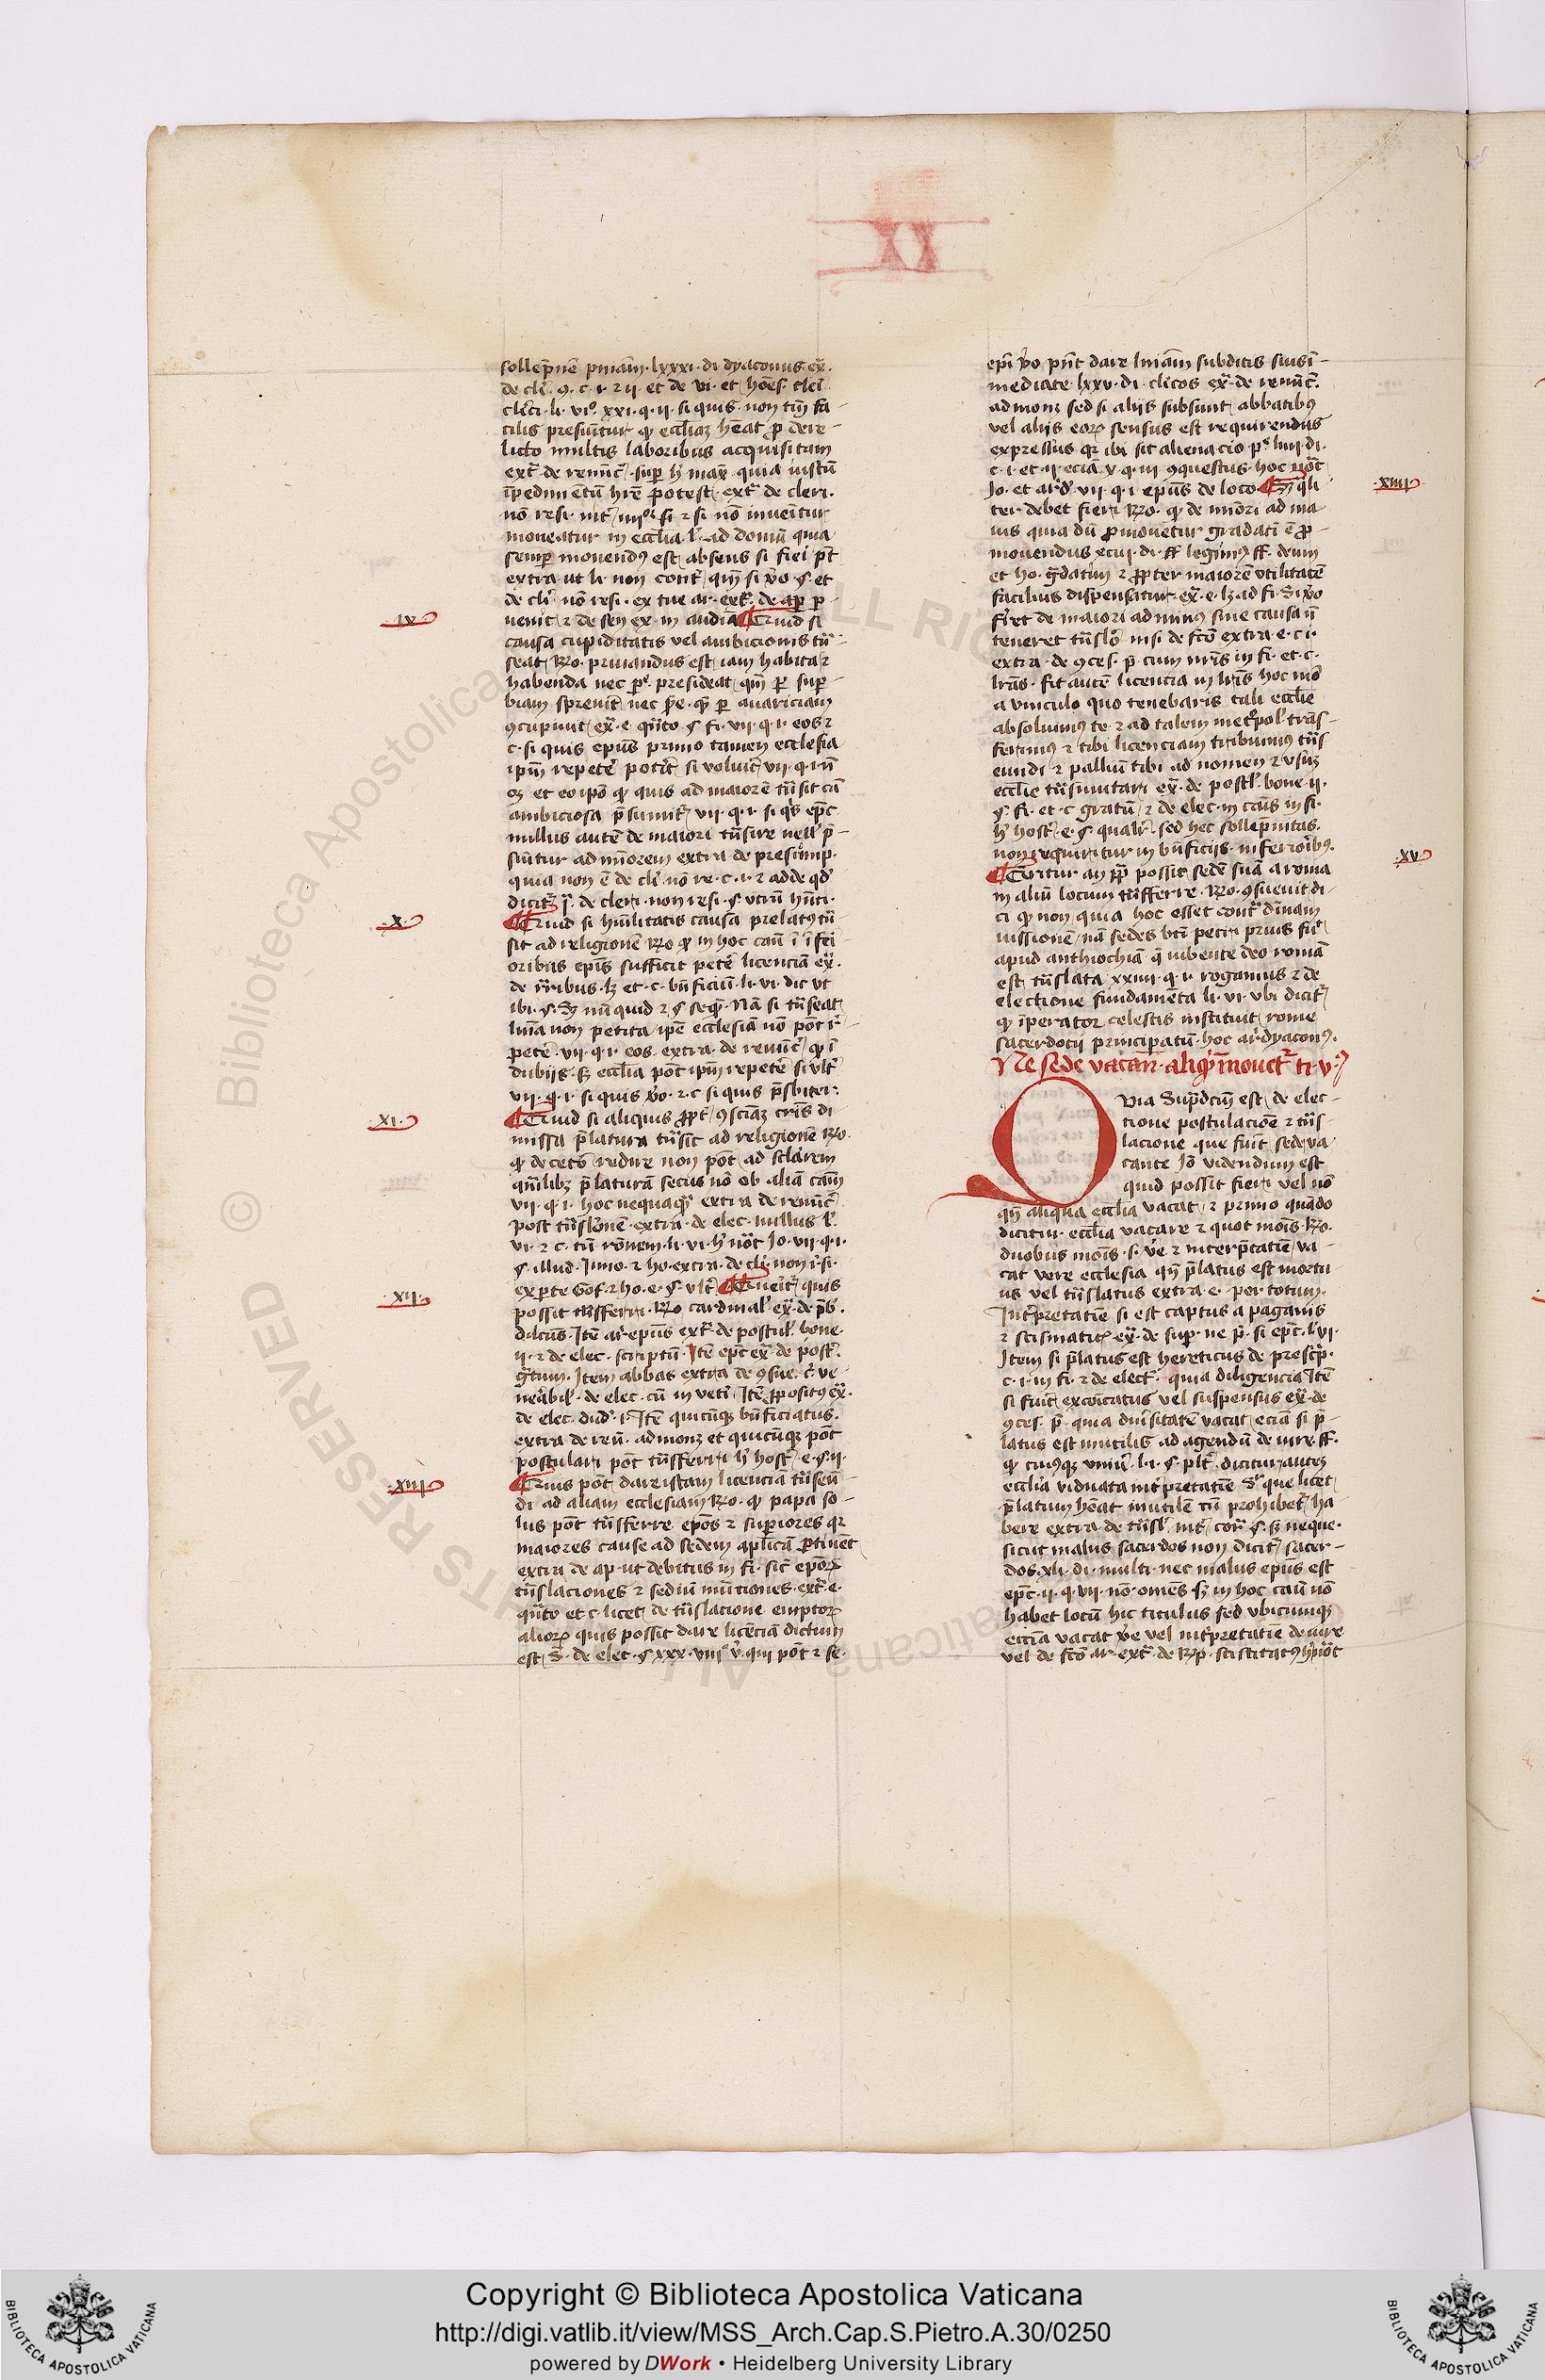 XX
sollep̄nē pniām · lxxxi · di dyaconus ex̄ ·
de cli · 9 · c · i · ⁊ ii · et de vi · et
clīci · li · vi° · xxi · q · ii · si quis · non tm̄ fa-
cilis presumitur ꝙ eccliaꝫ hēat ꝓ dere-
licto multis laboribus acquisitam
ext̄ de renūc̄ · suꝑ h̄ max̄ quia iustū
īpedimētū hr̄e potest · ext̄ de cleri ·
nō resi · si ⁊ si nō inuenitur
moueatur in ecclīa l' ad domū quia
semꝑ mouendꝰ est absens si fieri pt̄
extra ut li non cont̄ qm̄ si v̄o · et
de cli nō resi · ex tue ar · ext̄ · de ap̄ ꝑ-
uenit ⁊ de sen ex · in audiā ¶ Quid si
causa cupiditatis vel ambicionis tn̄-
seat Ro · priuandus est iam habita ⁊
habenda nec presideat qm̄ ꝑ suꝑ-
biam spreuit nec p̄e · q̄ ꝑ auariciam
9cupiuit ex̄ · e · qn̄to · § fi · vii · q · i · eos ⁊
c · si quis ep̄us primo tamen ecclesia
ip̄m repete potit̄ si voluit vii · q · i · n̄
oꝫ et eo ip̄o ꝙ quis ad maiorē tn̄sit cā
ambiciosa p̄sumit̄ vii · q · i · si qͥs ep̄c
nullus autē de maiori tn̄sire nell' p̄-
sūitur ad mīorem extra de presūmp ·
quia non ē de cli nō re · c · i · ⁊ adde qd̓
dicit̄ j̄ · de cleri · non resi · § utrū
¶ Quid si hūilitatis causa prelatꝰ tn̄-
sit ad religionē Ro ꝙ in hoc cau ī īferi-
oribus ep̄is sufficit pete licenciā ex̄ ·
de r̄ribus · lꝫ et · c · bn̄ficiū · li · vi · dic ut
ibi · § · Sꝫ nūquid ⁊ § seq̄ · Nā si tn̄seat
lnīa non petita ip̄e ecclesiā nō pōt r-
pete · vii · q · i · eos · extra · de renūc̄ ꝙ ī
dubijs · sꝫ ecclīa pōt ip̄m repete si vlt̄
vii · q · i · si quis v̄o · ⁊ · c si quis p̄sbiter ·
¶ Quid si aliquis ꝓpt̄ 9sciāꝫ crīs di-
missa p̄latura tn̄sit ad religionē Ro ·
ꝙ de cetō redire non pōt ad sclārem
qm̄libꝫ p̄laturā secus nō ob aliā cām
vii · q · i · hoc nequaq̄ extra de renūc̄
post tn̄slōnē · extra · de elec · nullus l' ·
vi · ⁊ c · tn̄ rōnem · li · vi · h̄ nōt Jo · vii · q · i ·
§ · illud · Jmo · ⁊ ho · extra · de cli non r · si ·
ex ꝑte Gof · ⁊ ho · e · § vlt̄ ¶ Queit̄ quis
possit tn̄sferri · Ro cardinal' ex̄ · de p̄b ·
Itē ar̄epūs ext̄ · de postul' bone ·
ii · ⁊ de elec · scriptū · Itē ep̄c ex̄ de post ·
Item abbas extra de 9sue · c̄ ve-
neābil' · de elec · cū in veti · Itē ꝓpositꝰ ex̄ ·
de elec · dud̓ · i · Itē quicūqꝫ bn̄ficiatus ·
extra de reū · admonꝫ et quicūqꝫ pōt
postulari pōt tn̄sferri h̄ host̄ · e · § ii ·
¶ Quis pōt dare istam licenciā tn̄seū-
di ad aliam ecclesiam Ro · ꝙ papa so-
lus pōt tn̄sferre ep̄os ⁊ suꝑiores qr
maiores cause ad sedem ap̄licā ꝑtinēt
extra de ap · ut debitus in fi · sic̄ ep̄oꝝ
tn̄slaciones ⁊ sediū mūtiones · ext̄ · e ·
qn̄to et c · licet de tn̄slacione
alioꝝ quis possit dare licēciā dictum
est S̄ · de elec · § xxx · viii° v̓ · qui pōt ⁊ se ·
IX
X
XI ·
XII ·
XIII
ep̄i v̄o pn̄t dare lniām subditis suis ī-
mediate lxxv · di · clīcos ex̄ · de renūc̄ ·
admonꝫ sed si alijs subsunt abbatibꝰ
vel alijs eoꝝ sensus est requirendus
expressus qr ibi sit alienacio liiii · di ·
c · i · et · ii · eciā x · q · iii 9questus · hoc nōt
Jo · et ard̓ · vii · q · i · ep̄us de loco ¶ Sꝫ qli-
ter debet fieri Ro · ꝙ de mīori ad ma-
ius quia dū ꝓmouetur gradatī ē ꝓ-
mouendus xcvi · di · legimꝰ ff · deum
et ho · gdatim ⁊ ꝓpter maiorē utilitatē
facilius dispensatur · ex̄ · e · lꝫ ad fi · Si v̄o
firet de maiori ad minꝰ sine causa n̄
teneret tn̄slō nisi de fcō extra · e · c i ·
extra · de 9ces · p̄ · cum nr̄is in fi · et · c ·
lrās · fit autē licencia in lr̄is hoc mō
a vinculo quo tenebaris tali ecclie
absoluimus te ⁊ ad talem met̄pol' trās-
ferimus ⁊ tibi licenciam tribuimus tn̄s-
eundi ⁊ palliū tibi ad nomen ⁊ vsuꝫ
ecclie tn̄smutari ex̄ · de postl' · bone · ii ·
§ · fi · et · c gratū ⁊ de elec · in caūs in fi ·
h̄ host̄ · e · § · qualr̄ · sed hec sollep̄nitas ·
non requiritur in bn̄ficijs · inferioribꝰ ·
¶ Queritur an pp̄ possit sedē suā a roma
in aliū locum tn̄sferre · Ro · 9sueuit di-
ci ꝙ non quia hoc esset cont̄ diuiām
iussionē nā sedes bt̄i petri prius fūit
apud anthiochiā q̄ iubente deo romā
est tn̄slata xxiiii · q · i · rogamus ⁊ de
electione fundamēta li · vi · vbi dicit̄
ꝙ īperator celestis instituit rome
sacerdocij principatū · hoc ar̄dyaconꝰ ·
Ne sede vacan̄ · aliqͥd inouet̄ ti · v ·
QVia Supdcm̄ est de elec-
tione postulacioē ⁊ tn̄s-
lacione que fiūt sede va-
cante Jō videndum est
quid possit fieri vel nō
qn̄ aliqua ecclīa vacat ⁊ primo quādo
dicitur ecclīa vacare ⁊ quot mōis · Ro ·
duobus mōis · s · ve ⁊ interp̄tatiē va-
cat vere ecclesia qn̄ p̄latus est mortu-
us vel tn̄slatus extra · e · per totum ·
Interp̄tatiē si est captus a paganis
⁊ scismaticꝭ ex̄ · de sup · ne p̄ · si ep̄c · l'vi ·
Item si p̄latus est hereticus de presc̄p ·
c · i · in fi · ⁊ de elect̄ · quia diligencia Itē
si fuīt excōicatus vel suspensus ex̄ · de
9ces · p̄ · quia diu̓sitatē vacat eciā si p̄-
latus est inutilis ad agendū de iure ff ·
ꝙ cuiusqꝫ uniū · l · i · § plt̄ · dicitur autēꝫ
ecclīa viduata int̓pretatiē S̓ que licet
p̄latum hēat inutilē tū prohibet̄ ha-
bere extra de tn̄sl' · int̄ · corꝑ § · sꝫ neque ·
sicut malus sacerdos non dicit̄ sacer-
dos · xli · di · multi · nec malus ep̄us est
ep̄c · ii · q · vii · nō · om̄es · sꝫ in hoc cau nō
habet locū hic titulus sed vbicumqꝫ
ecclīa vacat v̄e vel int̓pretatiē de iure
vel de fcō ar · ext̄ · de Rp̄ · sciscitatꝰ h̄ nōt
XIIII
XV
ALL RIGHTS RESERVED © Biblioteca Apostolica Vaticana
Copyright © Biblioteca Apostolica Vaticana
http://digi.vatlib.it/view/MSS_Arch.Cap.S.Pietro.A.30/0250
powered by DWork • Heidelberg University Library
BIBLIOTECA APOSTOLICA VATICANA
BIBLIOTECA APOSTOLICA VATICANA